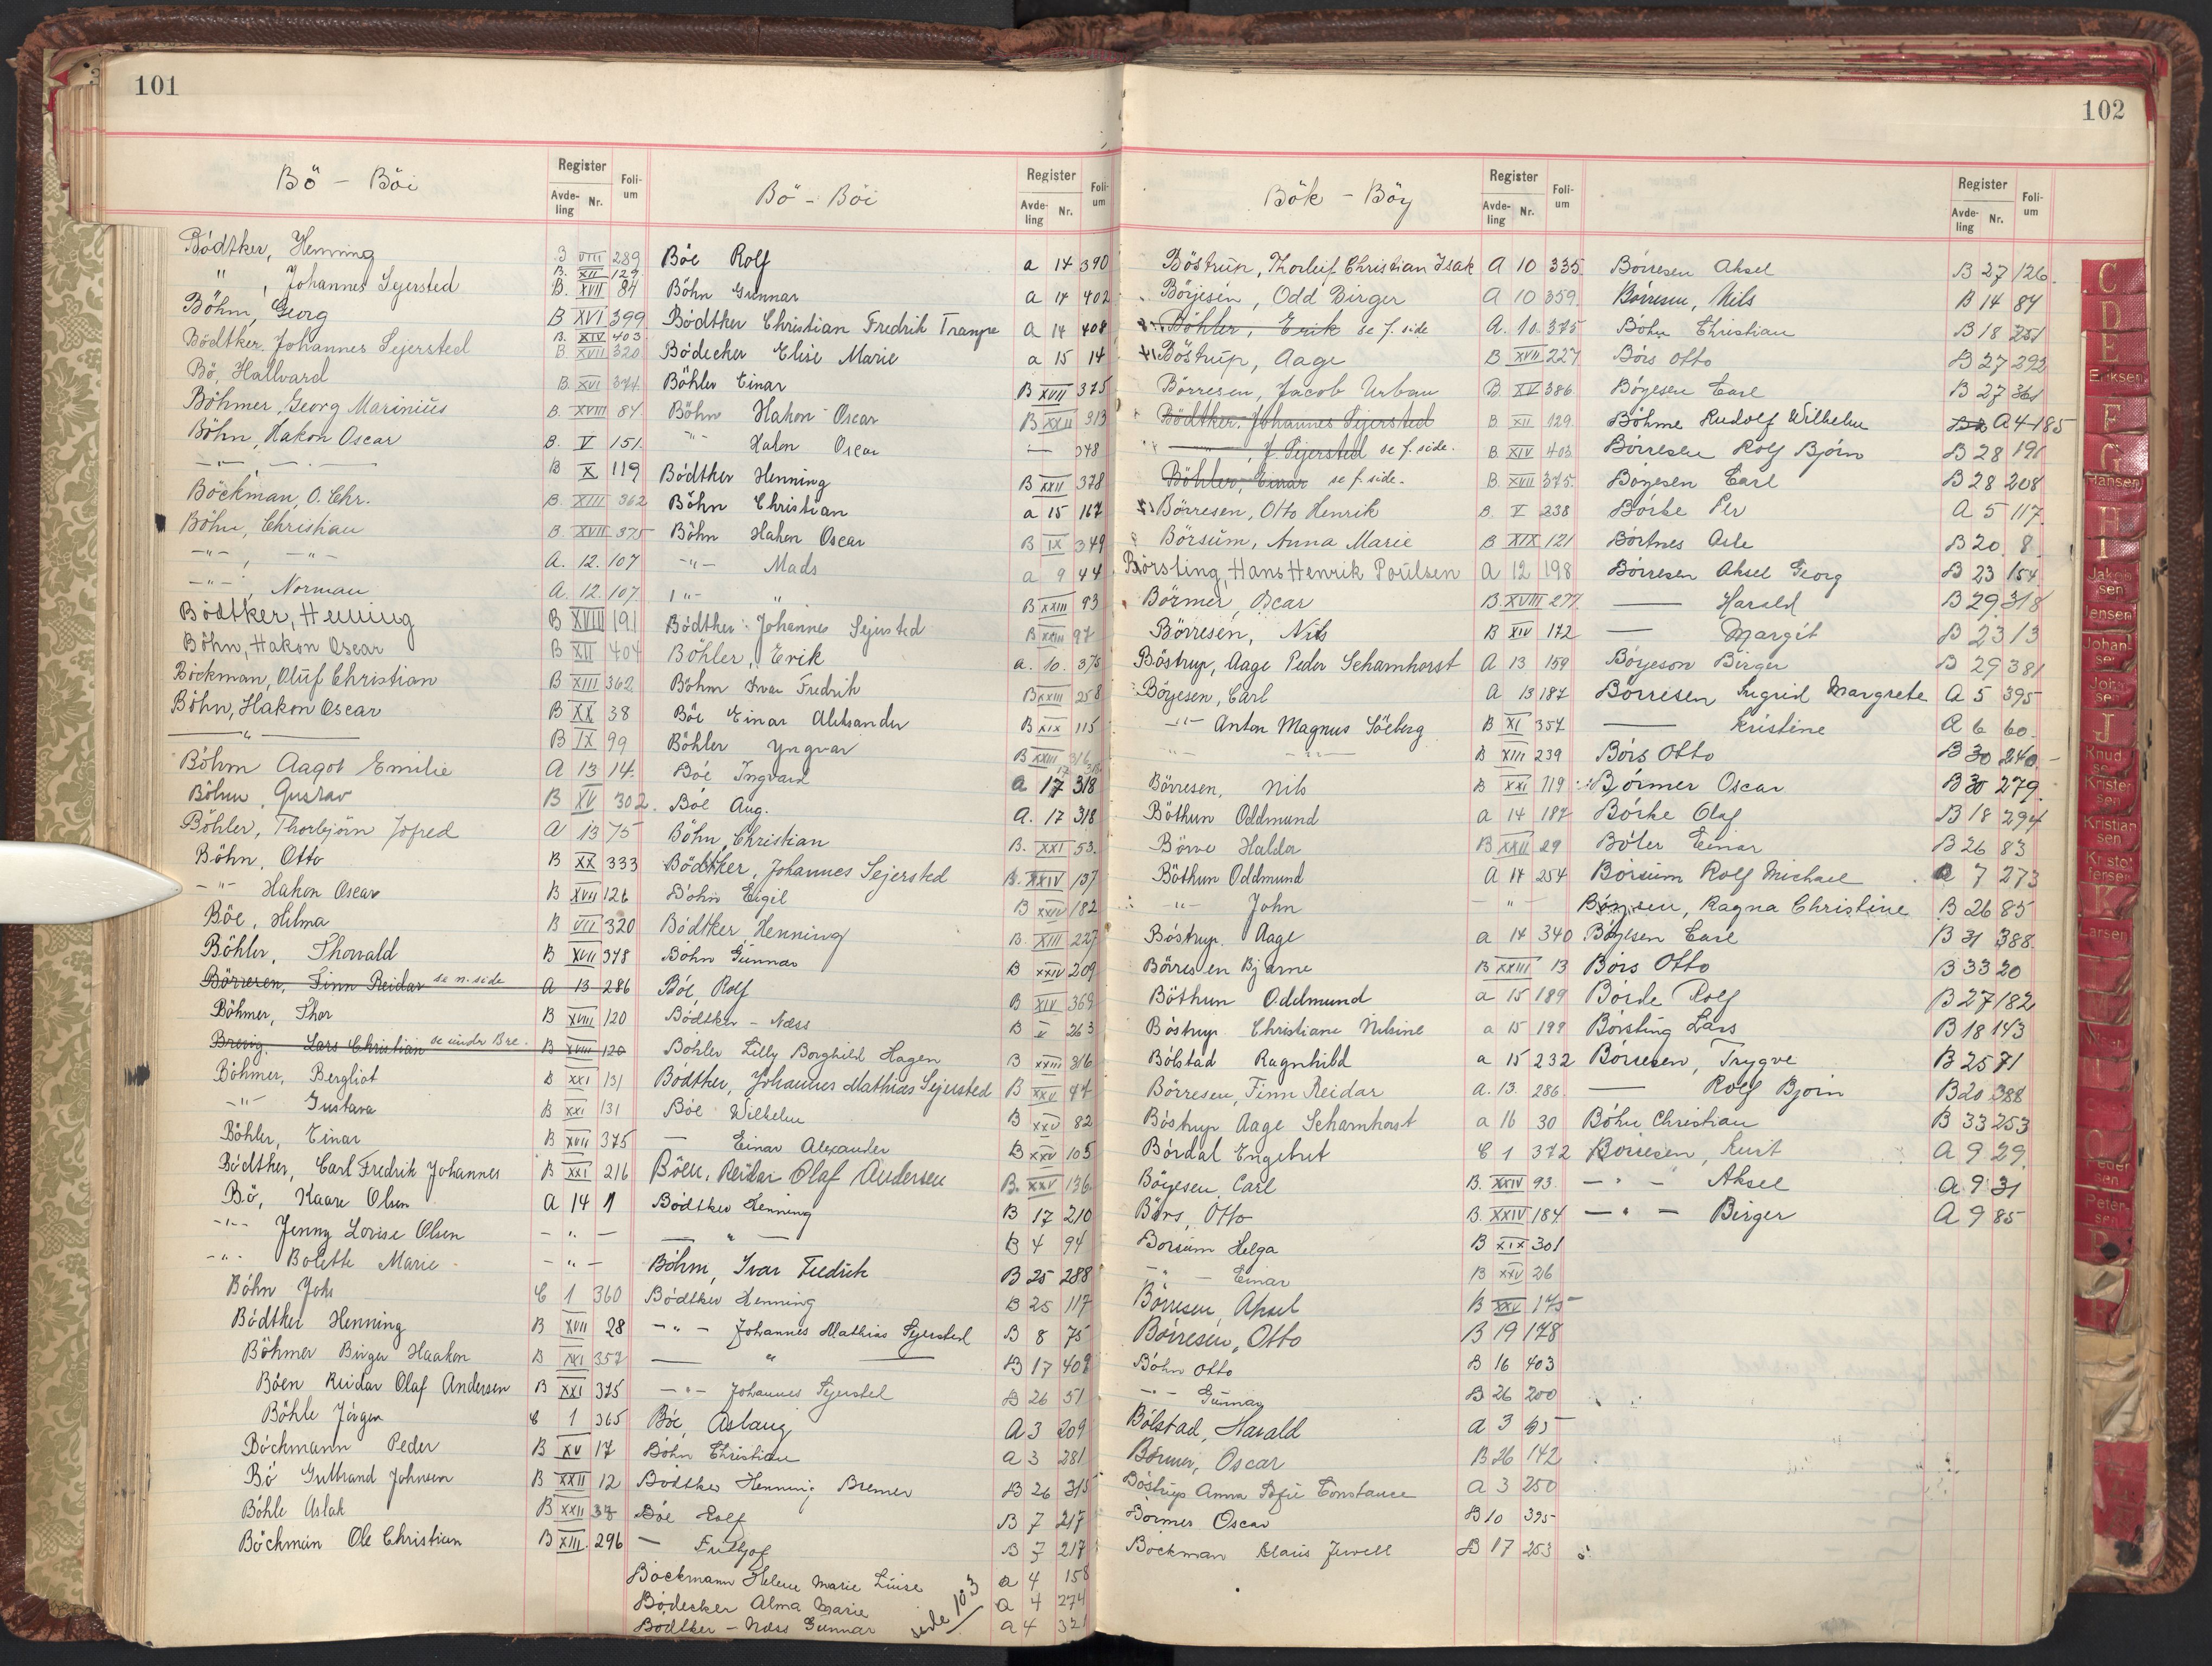 101
Bö - Böi
Register
Avdeling Nr.
Folium
Bödtker, Henning B VIII 289
B. XII 129
" , Johannes Sejersted B. XVII 84
Böhm, Georg B XVI 399
B. XIV 403
Bödtker. Johannes Sejersted B. XVII 320
Bö, Hallvard B. XVI 374
Böhmer, Georg Marinius B. XVIII 84
Böhn, Hakon Oscar B. V 151
-"- -"- B X 119
Böckman, O. Chr. B. XIII 362
Böhn, Christian B. XVII 375
-"- , -"- A. 12. 107
-"- , Norman A. 12. 107
Bödtker, Henning B XVIII 191
Böhn, Hakon Oscar B XII 404
Böckman, Oluf Christian B XIII 362
Böhn, Hakon Oscar B XX 38
" B IX 99
Böhm Aagot Emilie A 13 14
Böhm, Gustav B XV 302
Böhler, Thorbjörn Jofred A 13 75
Böhn, Otto B XX 333
-"- Hakon Oscar B XVII 126
Böe, Hilma B VII 320
Böhler, Thorvald B XVII 348
Börresen, Finn Reidar se n. side A 13 286
Böhmer, Thor B XVIII 120
Brevig. Lars Christian se under Bre. B XVIII 120
Böhmer, Bergliot B XXI 131
-"- Gustava B XXI 131
Böhler, Einar B XVII 375
Bödtker, Carl Fredrik Johannes B XXI 216
Bö, Kaare Olsen A 14 1
-"- Jenny Lovise Olsen - " -
-"- Bolette Marie - " -
Böhn Johs C 1 360
Bödtker Henning B XVII 28
Böhmer Birger Haakon B XXI 357
Böen Reidar Olaf Andersen B XXI 375
Böhle Jörgen C 1 365
Böckmann Peder B XV 17
Bö Gulbrand Johnsen B XXII 12
Böhle Aslak B XXII 37
Böckman Ole Christian B XIII. 296
Bö - Böi
Register
Avdeling Nr.
Folium
Böe Rolf a 14 390
Böhn Gunnar a 14 402
Bödtker Christian Fredrik Trampe a 14 408
Bödecker Elise Marie a 15 14
Böhler Einar B XVII 375
Böhn Hakon Oscar B XXII 313
-"- Hakon Oscar — 348
Bödtker Henning B XXII 378
Böhn Christian a 15 167
Böhn Hakon Oscar B IX 349
-"- Mads a 9 44
-"- " B XXIII 93
Bödtker Johannes Sejersted B XXIII 97
Böhler, Erik a. 10. 375
Böhm Ivar Fredrik B XXIII 258
Böe Einar Aleksander B XIX 115
Böhler Yngvar B XXIII 316
Böe Ingvard a 17 318
Böe Aug. A. 17 318
Böhn, Christian B. XXI 53
Bödtker, Johannes Sejersted B. XXIV 137
Böhn Eigil B XXIV 182
Bödtker Henning B. XIII 227
Böhn Gunnar B XXIV 209
Böe Rolf B XIV 369
Bödtker - Næss B V 263
Böhler Lilly Borghild Hagen B XXIII 316
Bödtker, Johannes Mathias Sejersted B XXV 44
Böe Wilhelm B XXV 82
— Einar Alexander B XXV 105
Böen, Reidar Olaf Andersen B. XXV 136
Bödtker Henning B 17 210
— " — B 4 94
Böhm, Ivar Fredrik B 25 288
Bödtker Henning B 25 117
-"- Johannes Mathias Sejersted B 8 75
— " — B 17 402
-"- Johannes Sejersted B 26 51
Böe, Aslaug A 3 209
Böhn Christian a 3 281
Bödtker Henning Bremer B 26 315
Böe Rolf B 7 217
— Fridtjof B 7 217
Böckmann Helene Marie Luise a 4 158
Bödecker Alma Marie a 4 274
Bödtker - Næss Gunnar a 4 321
side 103
102
Bök - Böy
Register
Avdeling Nr.
Folium
Böstrup, Thorleif Christian Isak A 10 335
Börjesen, Odd Birger A 10 359
Böhler, Erik se f. side A. 10. 375
Böstrup, Aage B XVII 227
Börresen, Jacob Urban B. XV 386
Bödtker. Johannes Sejersted B XII 129
— , J. Sejersted se f. side. B. XIV 403
Böhler, Einar se f. side. B. XVII 375
Börresen, Otto Henrik B. V 238
Börsum, Anna Marie B XIX 121
Börsting, Hans Henrik Poulsen A 12 198
Börmer, Oscar B. XVIII 277
Börresen, Nils B XIV 172
Böstrup, Aage Peder Scharnhorst A 13 159
Böyesen, Carl A 13 187
-"- Anton Magnus Söeberg B XI 357
-"- -"- B XIII 239
Börresen, Nils B XXI 119
Böthun Oddmund a 14 187
Börve Haldor B XXII 29
Böthun Oddmund A 14 254
-"- John - " -
Böstrup. Aage a 14 340
Börresen Bjarne B XXIII 13
Böthun Oddmund a 15 189
Böstrup Christiane Nilsine a 15 199
Bölstad Ragnhild a 15 232
Börresen, Finn Reidar a. 13. 286
Böstrup Aage Scharnhorst a 16 30
Bördal Engebret C 1 372
Böyesen, Carl B. XXIV 93
Börs, Otto B. XXIV 184
Borsum Helga B XIX 301
-"- Einar B XXV 26
Börresen, Aksel B XXV 175
Börresen, Otto B 19 178
Böhn Otto B 16 403
-"- Gunnar B 26 200
Bölstad, Harald a 3 65
Börmer, Oscar B 26 142
Böstrup Anna Sofie Constance a 3 250
Börmer Oscar B 10 395
Bockman Claus Jewell B 17 253
Register
Avdeling Nr.
Folium
Börresen Aksel B 27 126
Börresen, Nils B 14 84
Böhn Christian B 18 251
Börs Otto B 27 292
Böyesen Carl B 27 361
Böhme Rudolf Wilhelm A 4 185
Börresen Rolf Björn B 28 191
Böyesen Carl B 28 208
Börke Per A 5 117
Börtnes Asle B 20 8
Börresen Aksel Georg B 23 154
— Harald B 29 318
— Margit B 23 13
Böyeson Birger B 29 381
Börresen Sigrid Margrete A 5 395
— Kristine A 6 60
Börs Otto B 30 240
Börmer Oscar B 30 279
Börke Olaf B 18 294
Böler Einar B 26 83
Börsum Rolf Michael a 7 273
Böyesen, Ragna Christine B 26 85
Böyesen Carl B 31 388
Börs Otto B 33 20
Börde Rolf B 27 182
Börsting Lars B 18 143
Börresen, Trygve B 25 71
— Rolf Bjørn B 20 388
Böhn Christian B 33 253
Börresen, Kurt A 9 29
- " - Aksel A 9 31
- " - Birger A 9 85
C
D
E
Eriksen
F
G
Hansen
H
I
Jakobsen
Jensen
Johansen
J
Knudsen
Kristensen
Kristiansen
Kristoffersen
K
Larsen
Pedersen
Petersen